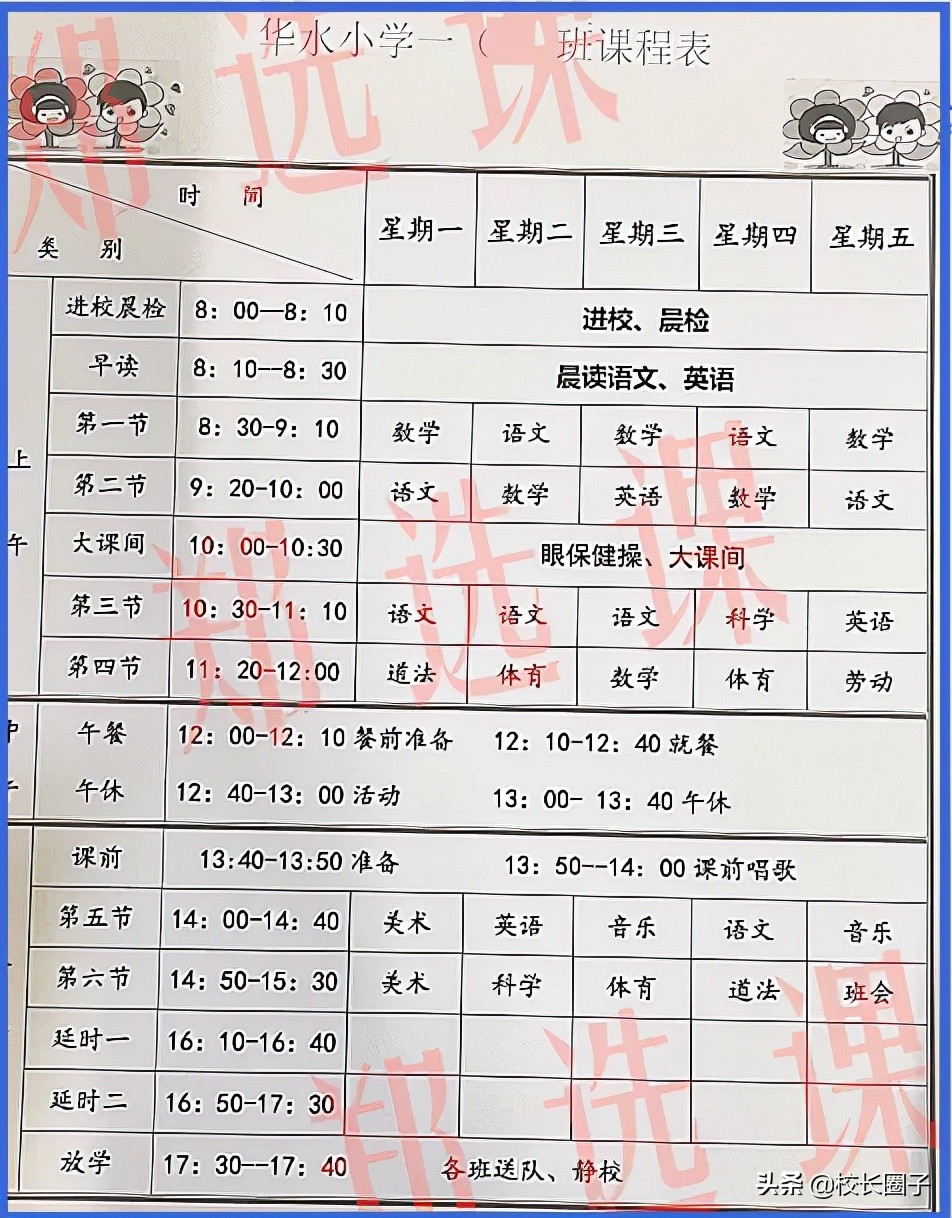 华水小学一（ 班课程表
时 间
类 别
星期一 星期二 星期三 星期四 星期五
进校晨检 8：00—8：10 进校、晨检
早读 8：10--8：30 晨读语文、英语
第一节 8：30-9：10 数学 语文 数学 语文 数学
上
第二节 9：20-10：00 语文 数学 英语 数学 语文
午
大课间 10：00-10:30 眼保健操、大课间
第三节 10：30-11：10 语文 语文 语文 科学 英语
第四节 11：20-12:00 道法 体育 数学 体育 劳动
午餐 12：00-12：10 餐前准备 12：10-12：40 就餐
午休 12：40-13：00 活动 13：00- 13：40 午休
课前 13:40-13:50 准备 13：50--14：00 课前唱歌
第五节 14：00-14：40 美术 英语 音乐 语文 音乐
第六节 14：50-15：30 美术 科学 体育 道法 班会
延时一 16：10-16：40
延时二 16：50-17：30
放学 17：30--17：40 各班送队、静校
郑选课
郑选课
郑选课
头条 @校长圈子